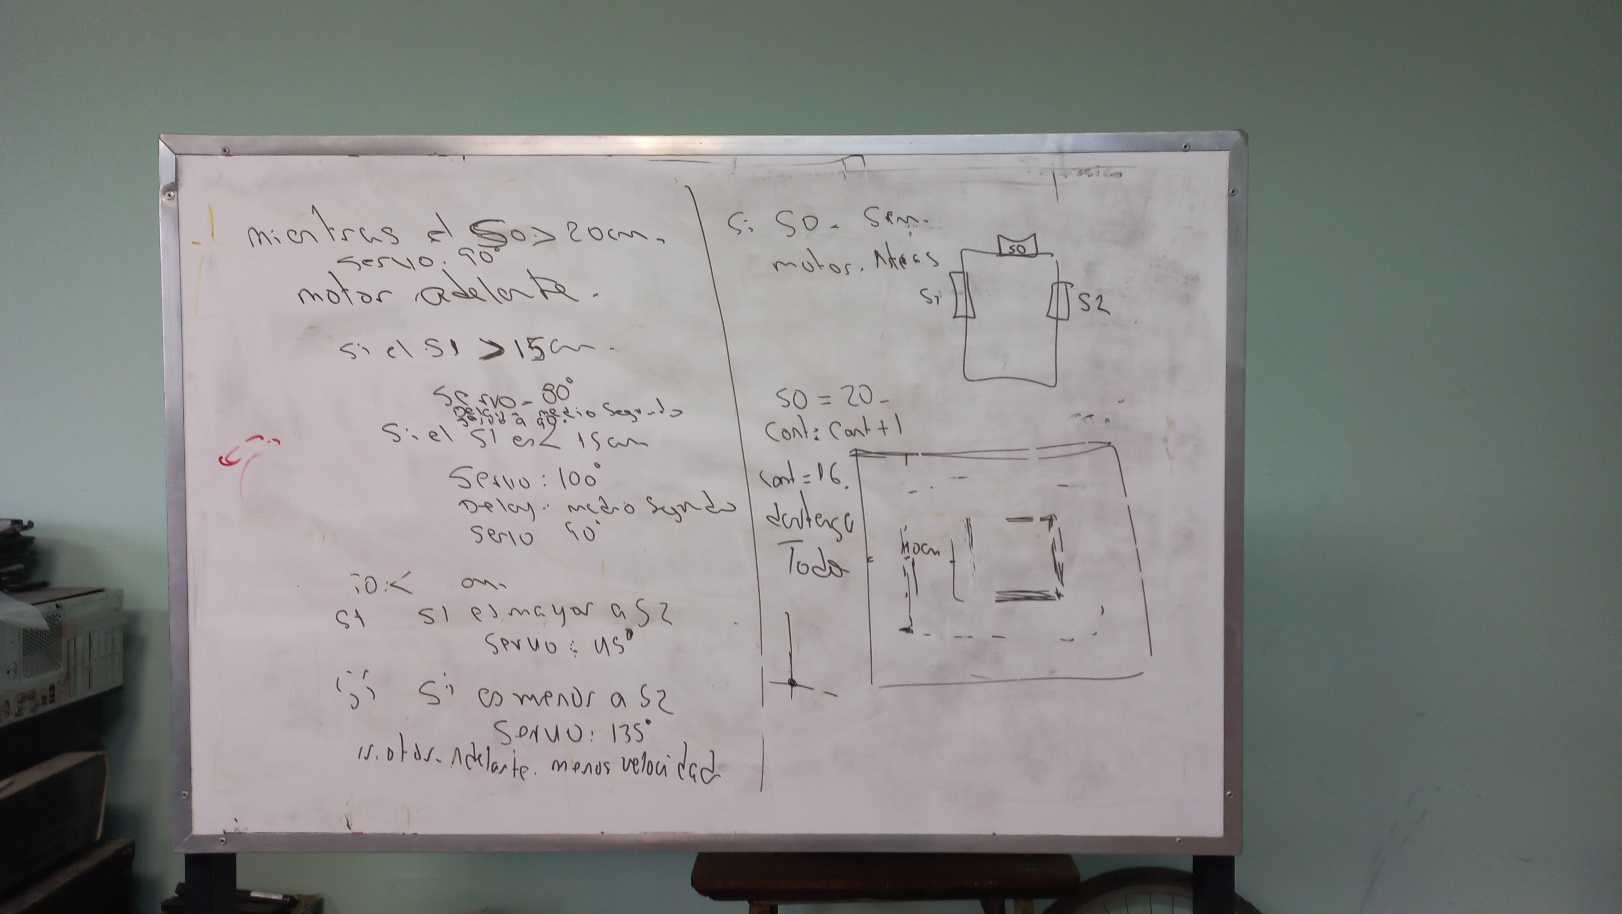 mientras el S0 > 20cm.
servo: 90°
motor adelante.
si el S1 > 15cm.
Servo - 80°
medio segundo
Si el S1 es < 15cm
Servo: 100°
Delay: medio segundo
servo 90°
S1 es mayor a S2
Servo: 45°
Si es menor a S2
Servo: 135°
Adelante. menos velocidad
Si S0 -
motor. Atras
S0
S1
S2
S0 = 20 -
Cont: Cont + 1
Cont = 16.
Todo